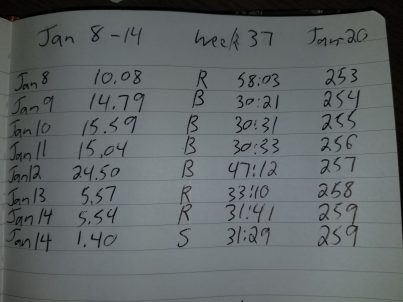 Jan 8-14 week 37 Jan-20
Jan 8 10.08 R 58:03 253
Jan 9 14.79 B 30:21 254
Jan 10 15.59 B 30:31 255
Jan 11 15.04 B 30:33 256
Jan 12 24.50 B 47:12 257
Jan 13 5.57 R 33:10 258
Jan 14 5.54 R 31:41 259
Jan 14 1.40 S 31:29 259